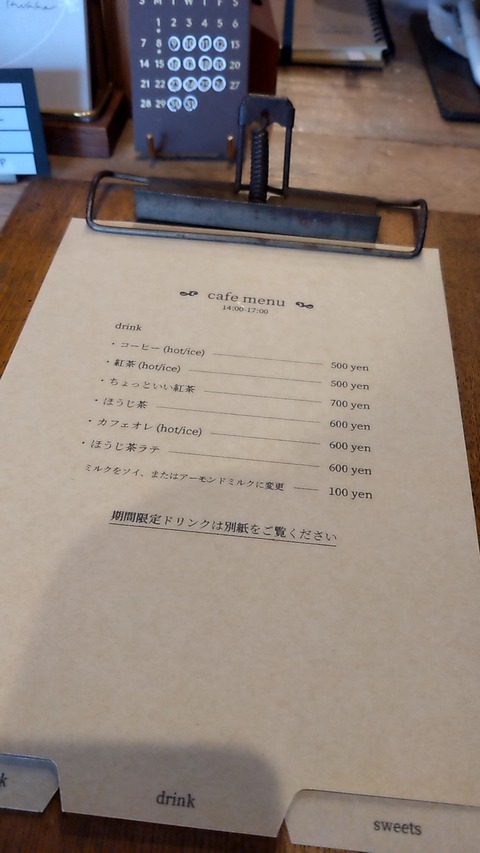 S M T W T F S
1 2 3 4 5 6
7 8 13
14 15 20
21 22 27
28 29
cafe menu
14:00-17:00
drink
・コーヒー (hot/ice) 500 yen
・紅茶 (hot/ice) 500 yen
・ちょっといい紅茶 700 yen
・ほうじ茶 600 yen
・カフェオレ (hot/ice) 600 yen
・ほうじ茶ラテ 600 yen
ミルクをソイ、またはアーモンドミルクに変更 100 yen
期間限定ドリンクは別紙をご覧ください
k
drink
sweets